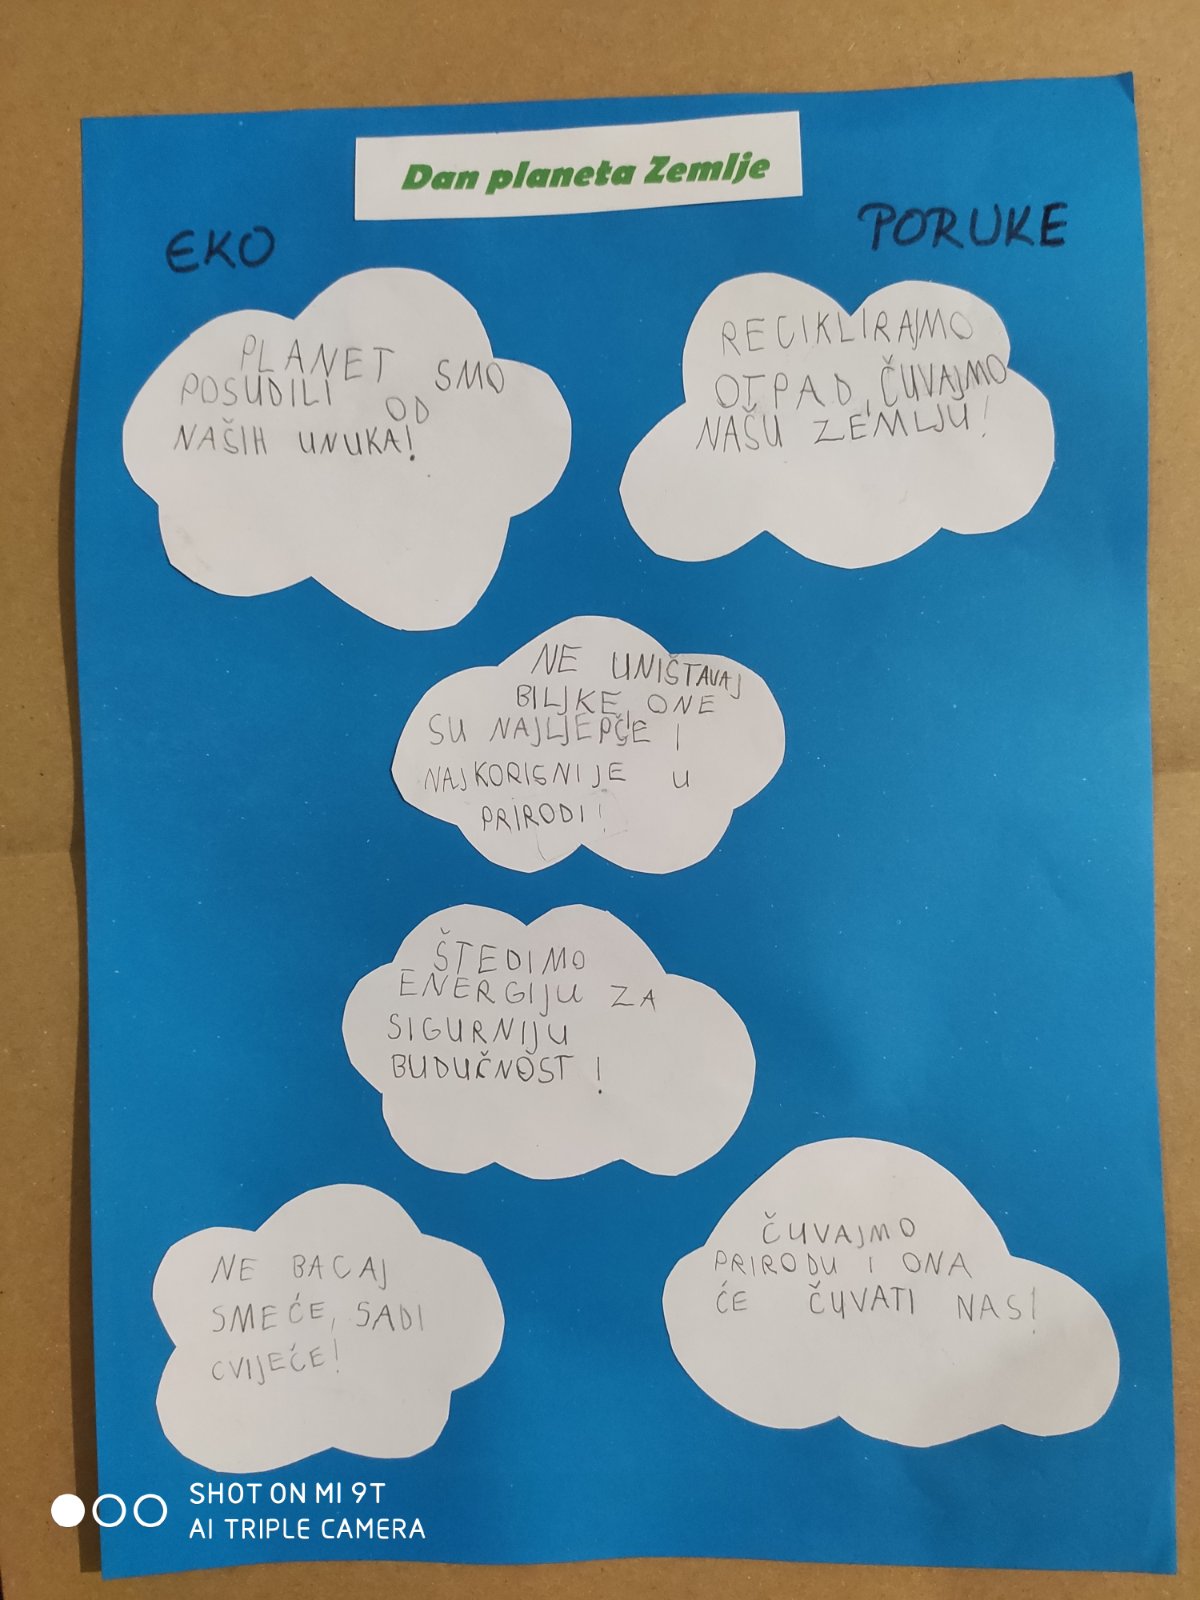 Dan planeta Zemlje
EKO PORUKE
PLANET SMO
POSUDILI OD
NAŠIH UNUKA!
RECIKLIRAJMO
OTPAD, ČUVAJMO
NAŠU ZEMLJU!
NE UNIŠTAVAJ
BILJKE, ONE
SU NAJLJEPČE I
NAJKORISNIJE U
PRIRODI!
ŠTEDIMO
ENERGIJU ZA
SIGURNIJU
BUDUČNOST!
NE BACAJ
SMEĆE, SADI
CVIJEĆE!
ČUVAJMO
PRIRODU I ONA
ĆE ČUVATI NAS!
SHOT ON MI 9T
AI TRIPLE CAMERA